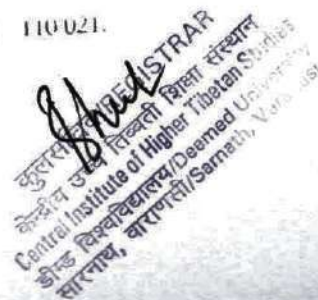 110 021.
कुलसचिव/REGISTRAR
केन्द्रीय उच्च तिब्बती शिक्षा संस्थान
Central Institute of Higher Tibetan Studies
डीम्ड विश्वविद्यालय/Deemed University
सारनाथ, वाराणसी/Sarnath,